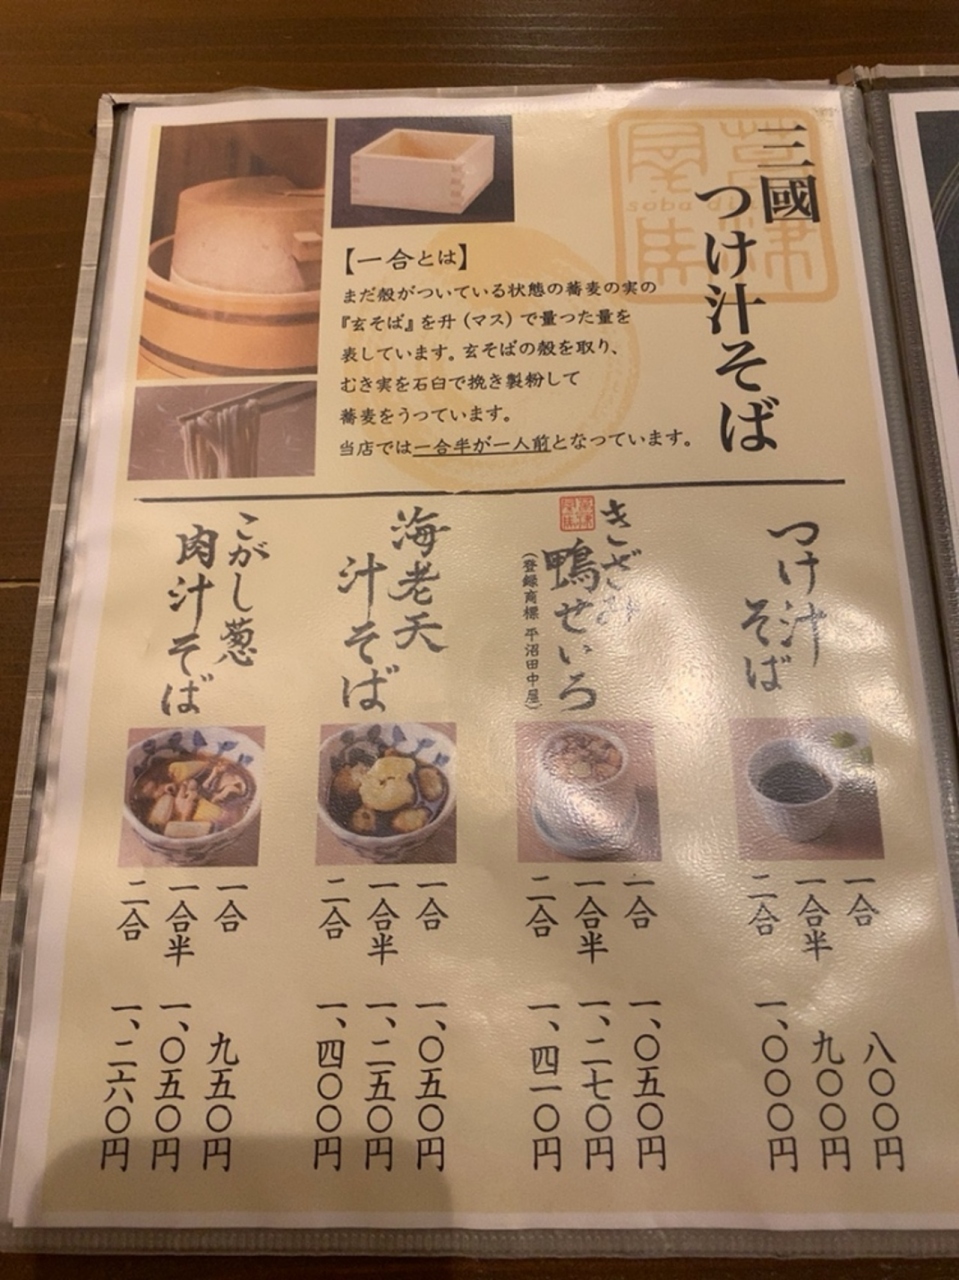 三國
つけ汁そば
soba di
【一合とは】
まだ殻がついている状態の蕎麦の実の
『玄そば』を升（マス）で量つた量を
表しています。玄そばの殻を取り、
むき実を石臼で挽き製粉して
蕎麦をうつています。
当店では一合半が一人前となつています。
つけ汁
そば
一合 八〇〇円
一合半 九〇〇円
二合 一、〇〇〇円
きざみ
鴨せいろ
（登録商標 平沼田中屋）
一合 一、〇五〇円
一合半 一、二七〇円
二合 一、四一〇円
海老天
汁そば
一合 一、〇五〇円
一合半 一、二五〇円
二合 一、四〇〇円
こがし葱
肉汁そば
一合 九五〇円
一合半 一、〇五〇円
二合 一、二六〇円